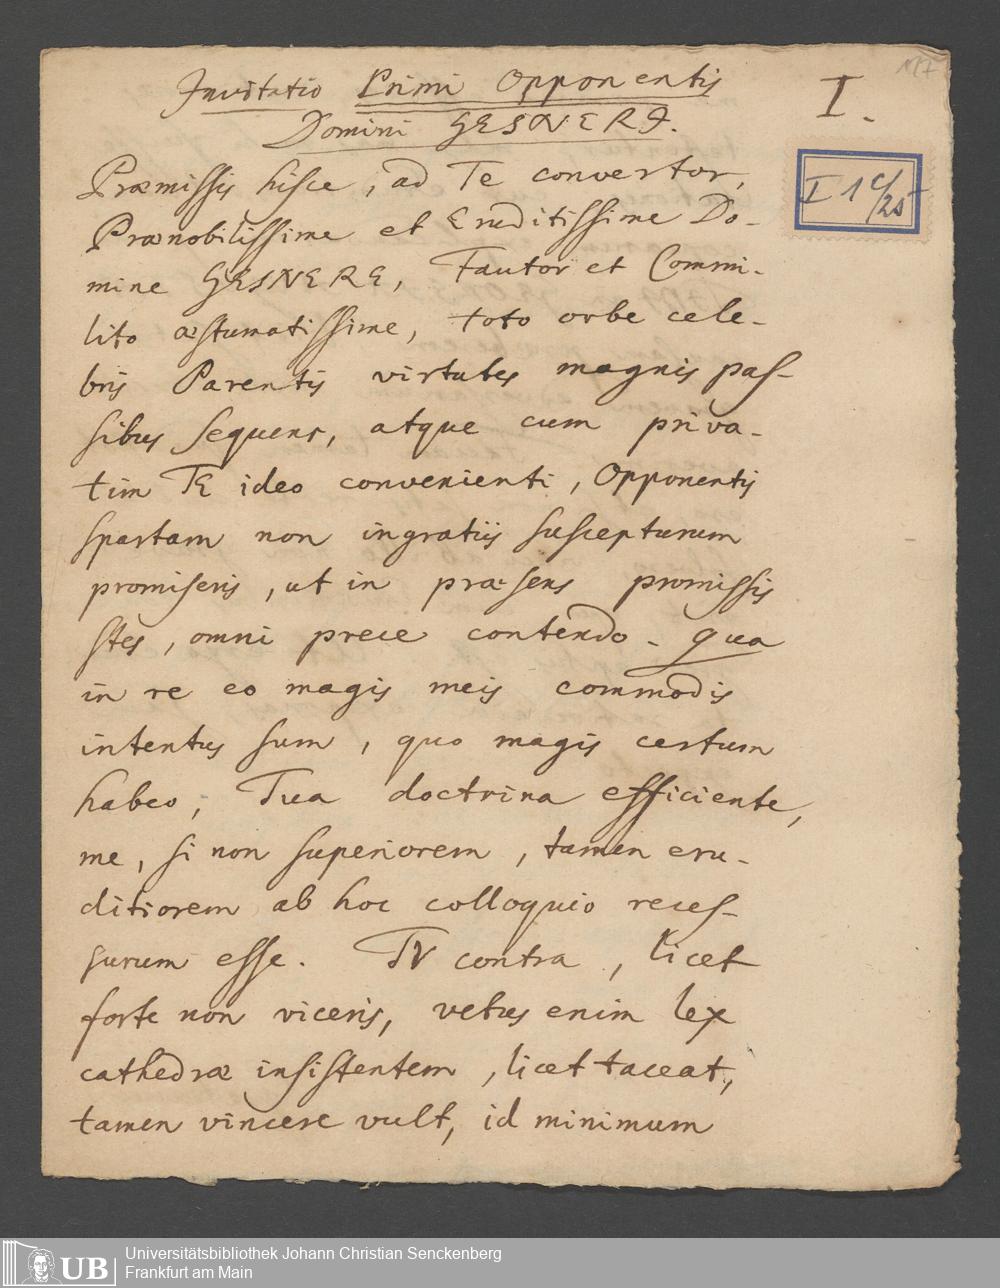 117
Invitatio Primi Opponentis
I.
Domini GESNERI.
I 1 c/25
Præmissis hisce, ad Te convertor,
Prænobilissime et Eruditissime Do-
mine GESNERE, Fautor et Commi-
lito æstumatissime, toto orbe cele-
bris Parentis virtutes magnis pas-
sibus sequens, atque cum priva-
tim TE ideo convenienti, Opponentis
spartam non ingratiis suscepturum
promiseris, ut in præsens promissis
stes, omni prece contendo. Qua
in re eo magis meis commodis
intentus sum, quo magis certum
habeo, Tua doctrina efficiente,
me, si non superiorem, tamen eru-
ditiorem ab hoc colloquio reces-
surum esse. TV contra, licet
forte non viceris, vetus enim lex
cathedræ insistentem, licet taceat,
tamen vincere vult, id minimum
UB
Universitätsbibliothek Johann Christian Senckenberg
Frankfurt am Main